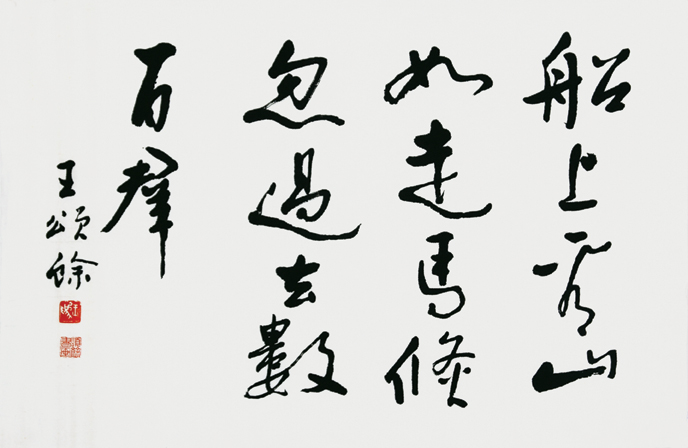 船上看山
如走馬倏
忽過去數
百羣
王頌餘